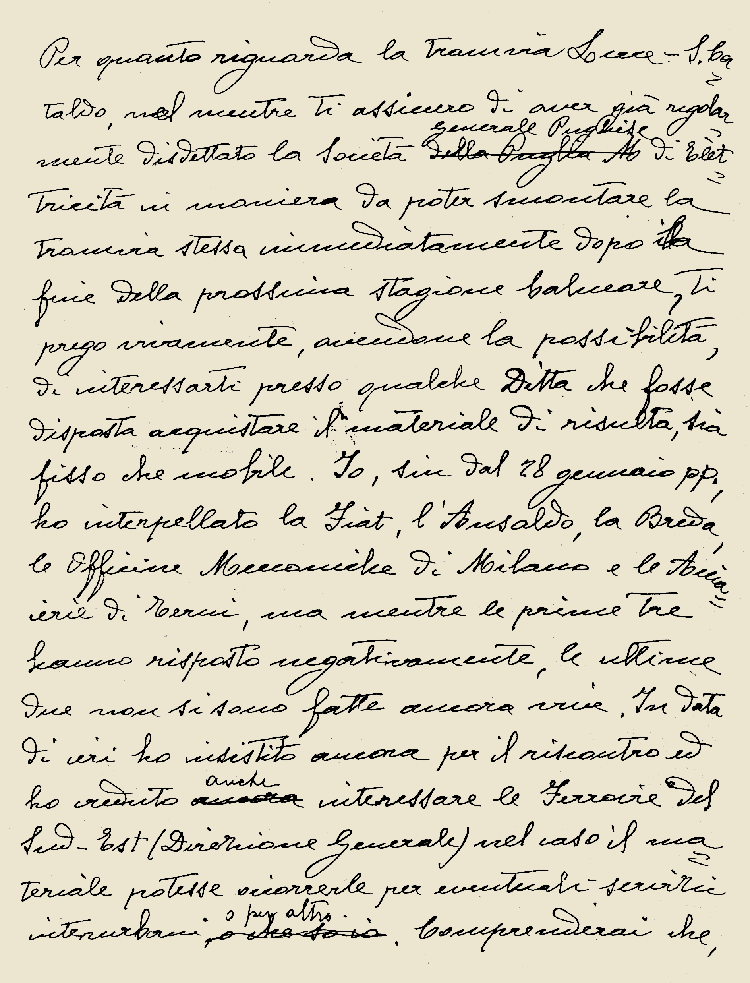 Per quanto riguarda la tramvia Lecce - S. Ca=
taldo, nel mentre ti assicuro di aver già regolar=
generale Pugliese
mente disdettato la Società della Puglia di Elet=
tricità in maniera da poter smontare la
tramvia stessa immediatamente dopo la
fine della prossima stagione balneare, ti
prego vivamente, avendone la possibilità,
di interessarti presso qualche Ditta che fosse
disposta acquistare il materiale di risulta, sia
fisso che mobile. Io, sin dal 28 gennaio pp.,
ho interpellato la Fiat, l'Ansaldo, la Breda,
le Officine Meccaniche di Milano e le Accia=
ierie di Terni, ma mentre le prime tre
hanno risposto negativamente, le ultime
due non si sono fatte ancora vive. In data
di ieri ho insistito ancora per il riscontro ed
anche
ho creduto ancora interessare le Ferrovie del
Sud-Est (Direzione Generale) nel caso il ma=
teriale potesse occorrerle per eventuali servizi
o per altro.
interurbani, o che so io. Comprenderai che,